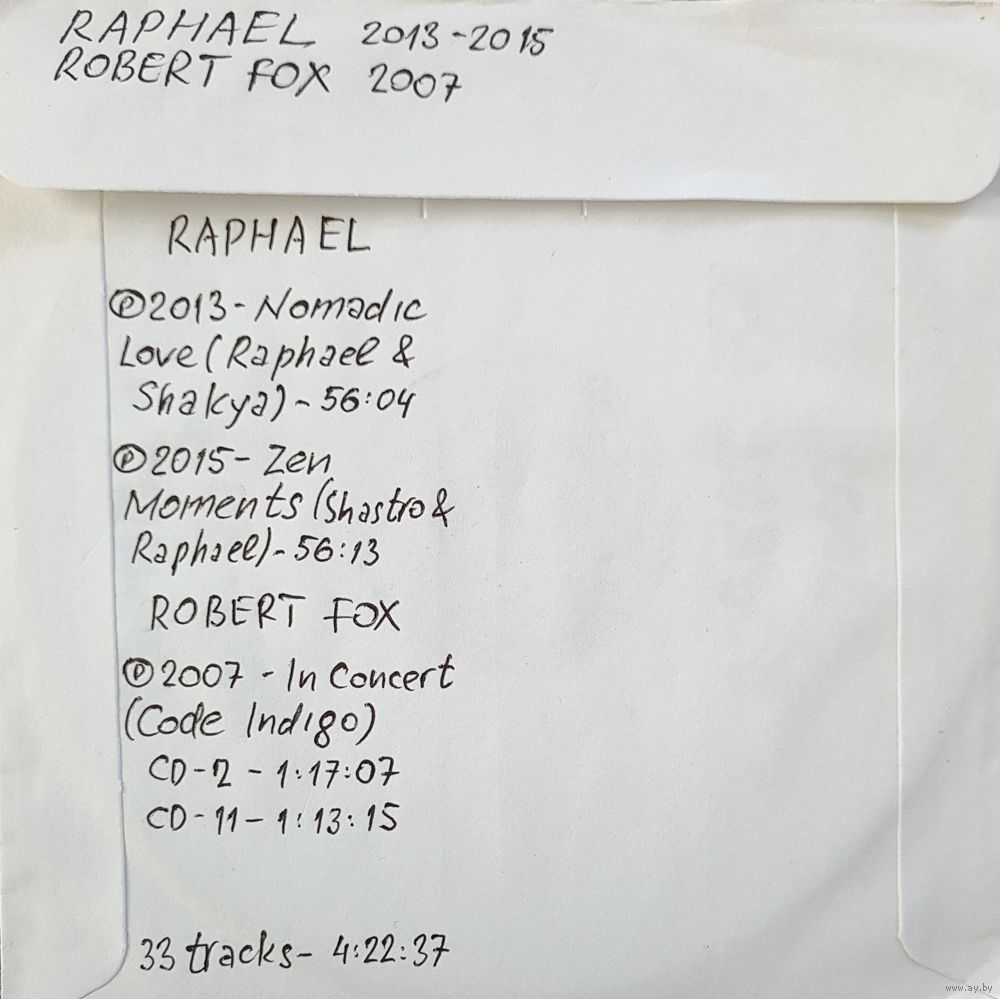 RAPHAEL 2013-2015
ROBERT FOX 2007
RAPHAEL
℗2013-Nomadic
Love(Raphael &
Shakya)-56:04
℗2015-Zen
Moments(Shastro&
Raphael)-56:13
ROBERT FOX
℗2007-In Concert
(Code Indigo)
CD-2-1:17:07
CD-11-1:13:15
33 tracks-4:22:37
www.ay.by